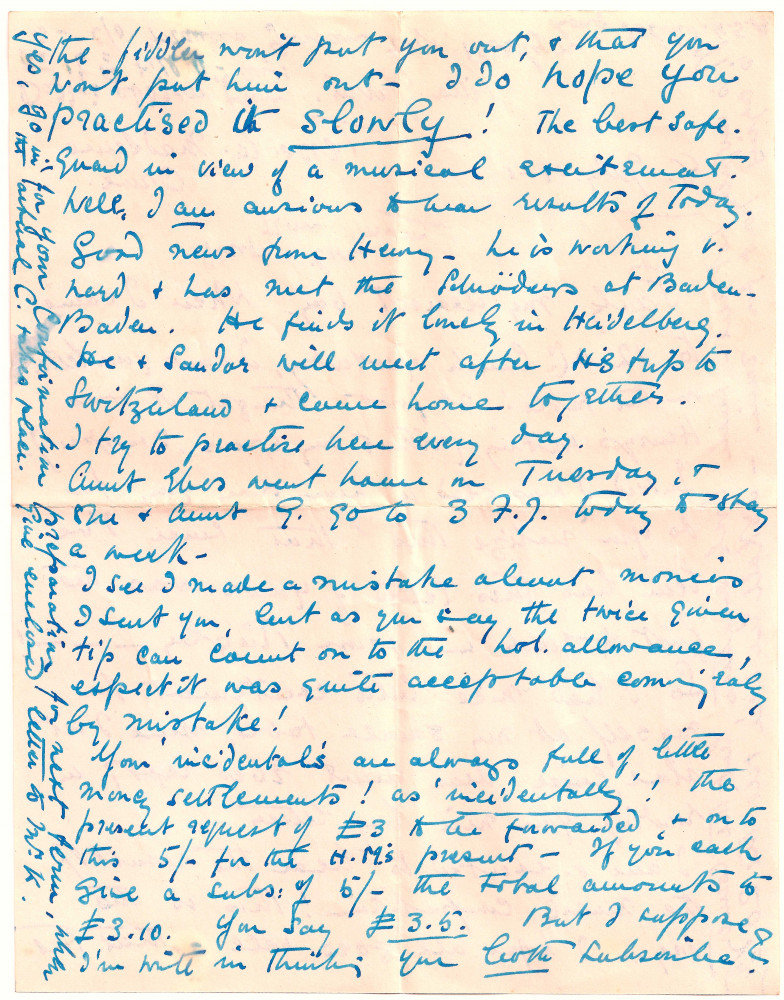 the fiddler won't put you out, & that you
won't put him out – I do hope you
practised it slowly! The best safe.
guard in view of a musical excitement.
Well, I am anxious to hear results of Today.
Good news from Henry – he is working v.
hard & has met the Schröders at Baden-
Baden. He finds it lonely in Heidelberg.
He & Sandor will meet after H's trip to
Switzerland & come home together.
I try to practise here every day.
Aunt Ebes went home on Tuesday, &
she & Aunt G. go to 3 F.J. today to stay
a week –
I see I made a mistake about monies
I sent you, but as you say the twice given
tip can count on to the hol. allowance,
expect it was quite acceptable coming
by mistake!
Your 'incidentals' are always full of little
money settlements! as 'incidentally'! the
present request of £3 to be forwarded, & on to
this 5/- for the H.M's present – If you each
give a subs: of 5/- the total amounts to
£3.10. You say £3.5. But I suppose
I'm write in thinking you both subscribe?
Yes, go in for your Confirmation preparation for next term, when
the actual C. takes place. Give enclosed letter to Mr K.